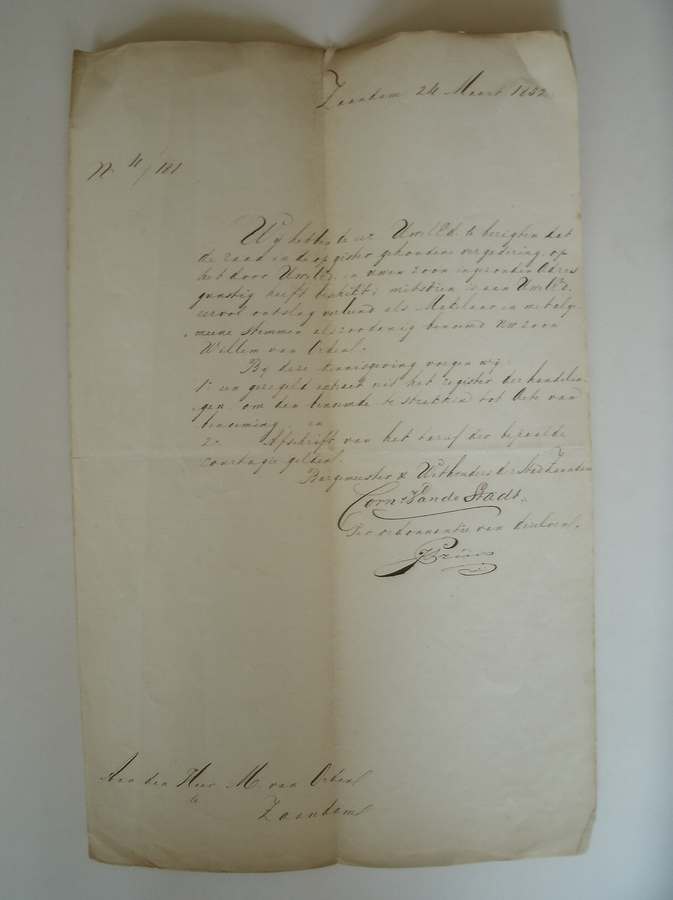 Zaandam 24 Maart 1852
N. 4/181
Wij hebben de eer UwelEd. te berigten dat
de raad in de op gister gehoudene vergadering op
het door UwelEd. en uwen zoon ingezonden Adres
gunstig heeft beschikt; mitsdien aan UwelEd.
eervol ontslag verleend als Makelaar en met alge-
meene stemmen als zoodanig benoemd uw zoon
Willem van Orden.
Bij deze kennisgeving voegen wij
1o een gezegeld extract uit het register der handelin-
gen, om den benoemde te strekken tot Acte van
benoeming en
2o Afschrift van het tarief der bepaalde
courtagie gelden.
Burgemeester & Wethouders der Stad Zaandam
Corn. Van de Stadt
Ter ordonnantie van dezelven.
Aan den Heer M. van Orden
te
Zaandam